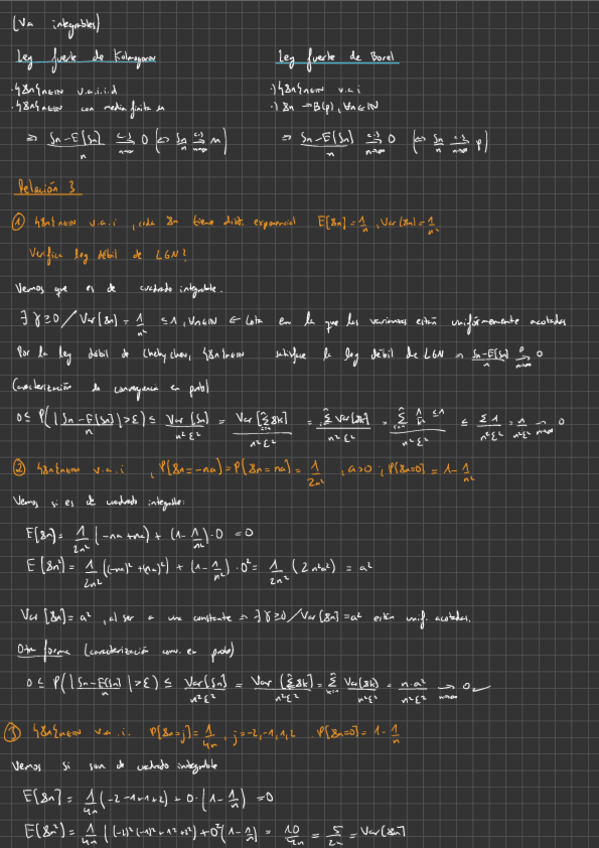 (Va integrables)
Ley fuerte de Kolmogorov
Ley fuerte de Borel
· {Xn}n∈ℕ v.a.i.i.d
· {Xn}n∈ℕ con media finita m
⇒ Sn-E[Sn]/n →(c.s, n→∞) 0 (⇔ Sn/n →(c.s, n→∞) m)
·) {Xn}n∈ℕ v.a.i
·) Xn → B(p), ∀n∈ℕ
⇒ Sn-E[Sn]/n →(c.s, n→∞) 0 (⇔ Sn/n →(c.s, n→∞) p)
Relación 3
① {Xn}n∈ℕ v.a.i, cada Xn tiene dist. exponencial E[Xn]=1/n, Var(Xn)=1/n²
Verifica ley débil de LGN?
Vemos que es de cuadrado integrable.
∃ γ≥0 / Var[Xn] = 1/n² ≤1, ∀n∈ℕ ← Cota en la que las varianzas están uniformemente acotadas
Por la ley débil de Chebychev, {Xn}n∈ℕ satisface la ley débil de LGN ⇒ Sn-E[Sn]/n →(P, n→∞) 0
(Caracterización de convergencia en prob)
0 ≤ P(|Sn-E[Sn]/n|>ε) ≤ Var[Sn]/n²ε² = Var[Σxk]/n²ε² = ΣVar[xk]/n²ε² = Σ 1/k² ≤1/n²ε² ≤ Σ1/n²ε² = n/n²ε² →(n→∞) 0
② {Xn}n∈ℕ v.a.i, P[Xn=-na]=P[Xn=na]=1/2n², a>0; P[Xn=0]=1-1/n²
Vemos si es de cuadrado integrable:
E[Xn]= 1/2n² (-na+na) + (1-1/n²)·0 = 0
E[Xn²]= 1/2n² ((-na)²+(na)²) + (1-1/n²)·0² = 1/2n² (2n²a²) = a²
Var[Xn]=a², al ser a una constante ⇒ ∃γ≥0/Var[Xn]=a² están unif. acotadas.
Otra forma (caracterización conv. en prob)
0 ≤ P(|Sn-E[Sn]/n|>ε) ≤ Var[Sn]/n²ε² = Var[Σxk]/n²ε² = Σ Var(xk)/n²ε² = n·a²/n²ε² →(n→∞) 0 ✓
③ {Xn}n∈ℕ v.a.i. P[Xn=j]=1/4n, j=-2,-1,1,2. P[Xn=0]=1-1/n
Vemos si son de cuadrado integrable
E[Xn] = 1/4n (-2-1+1+2) + 0·(1-1/n) = 0
E[Xn²] = 1/4n ((-2)²+(-1)²+1²+2²)+0²(1-1/n) = 10/4n = 5/2n = Var[Xn]